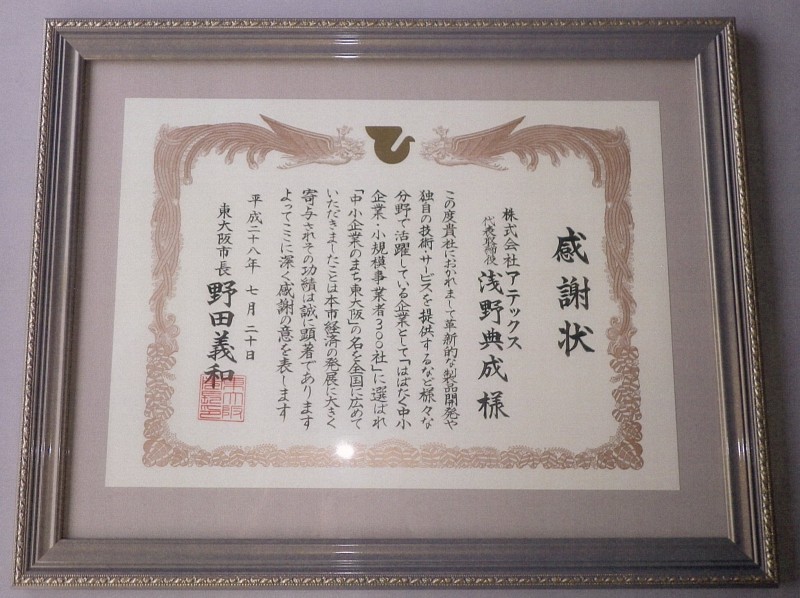 感謝状
株式会社アテックス
代表取締役 浅野典成 様
この度貴社におかれまして革新的な製品開発や
独自の技術・サービスを提供するなど様々な
分野で活躍している企業として「はばたく中小
企業・小規模事業者300社」に選ばれ
「中小企業のまち東大阪」の名を全国に広めて
いただきましたことは本市経済の発展に大きく
寄与されその功績は誠に顕著であります
よってここに深く感謝の意を表します
平成二十八年 七月 二十日
東大阪市長 野田義和